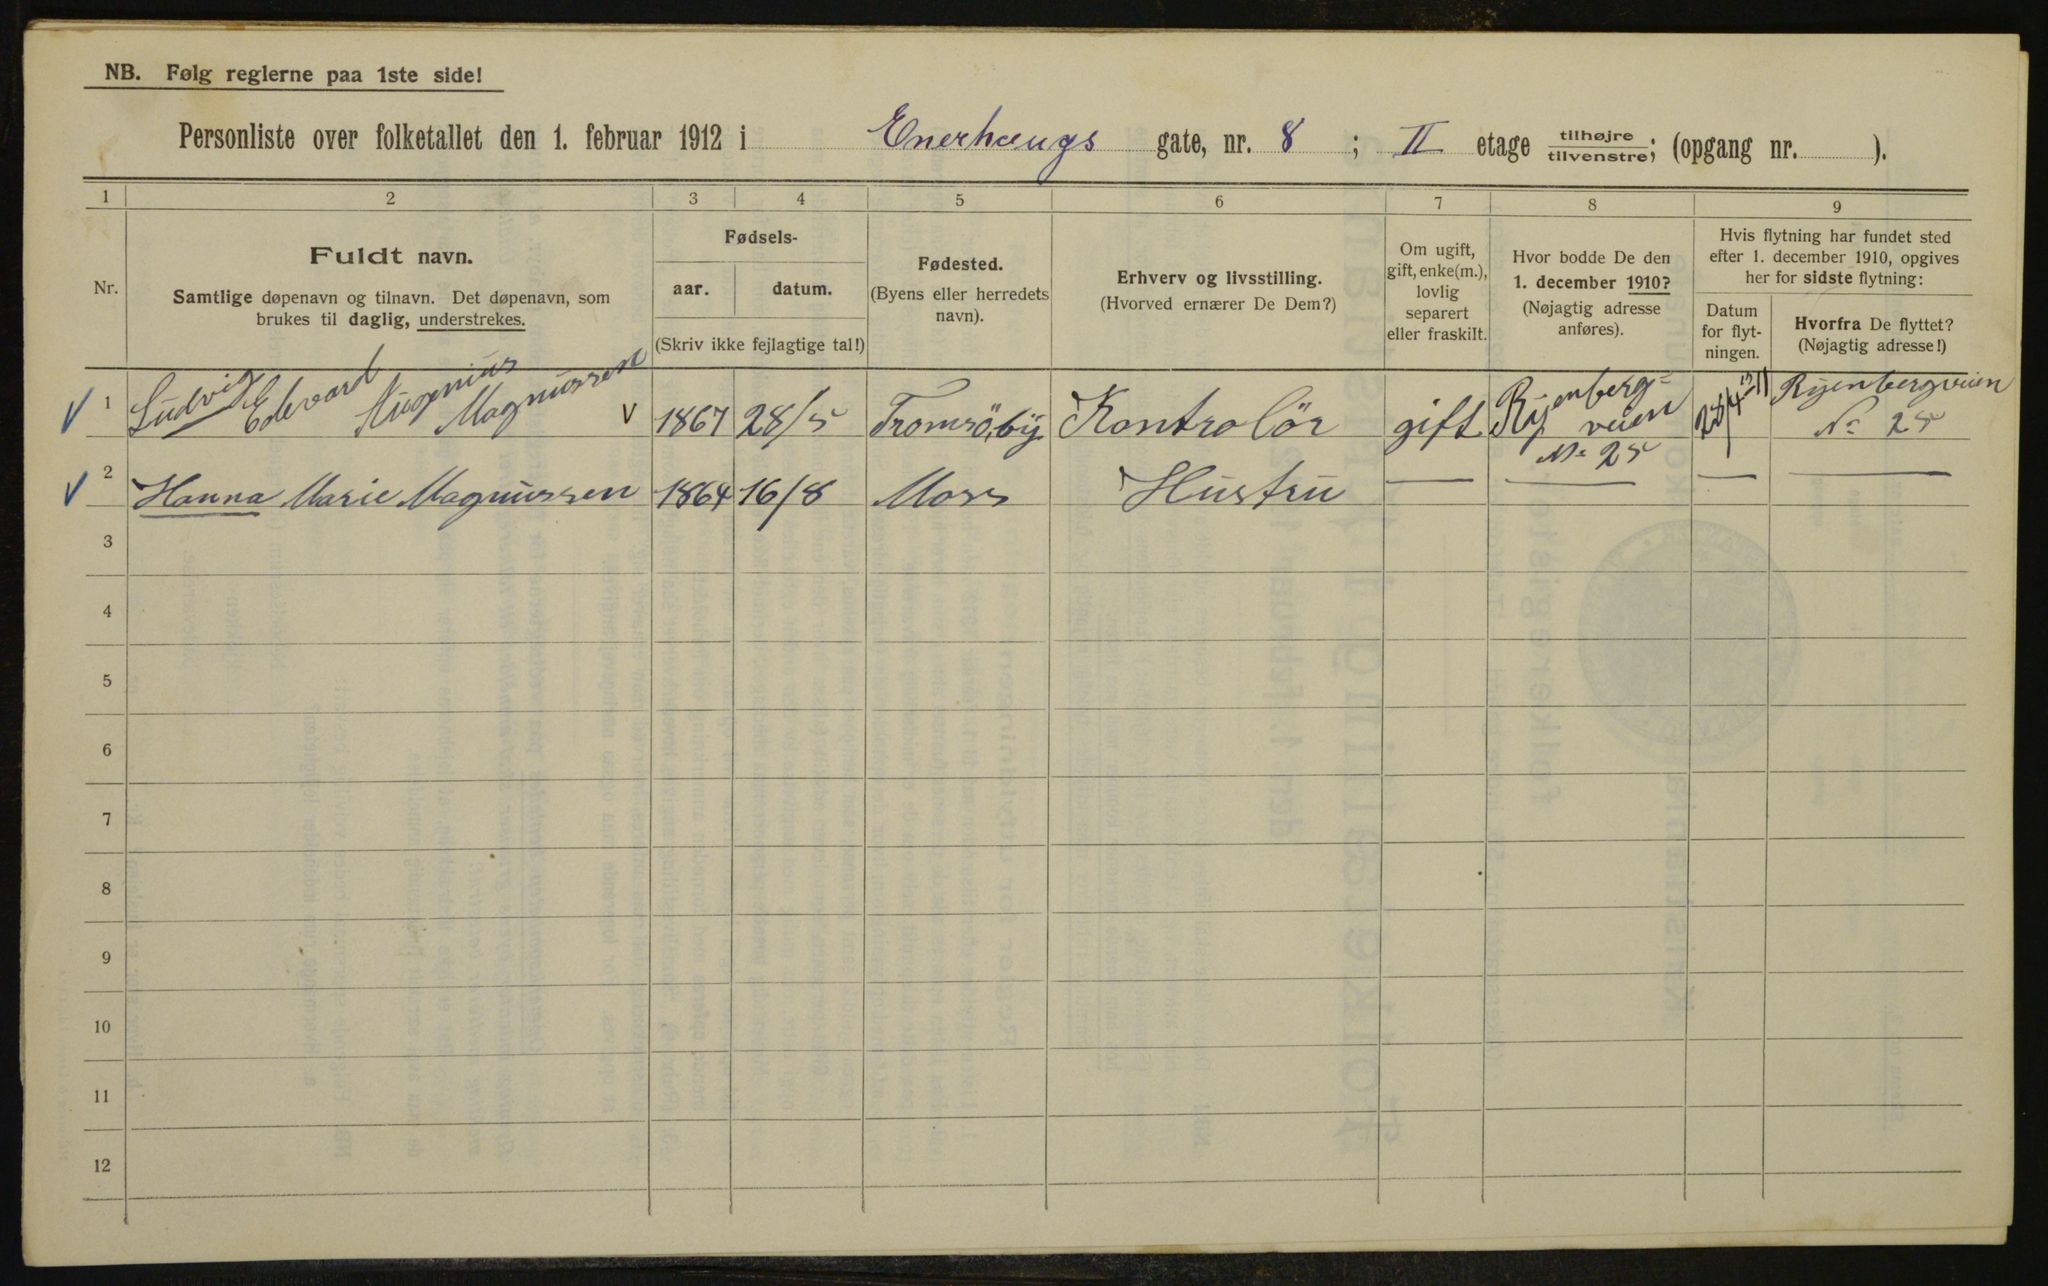 NB. Følg reglerne paa 1ste side!
Personliste over folketallet den 1. februar 1912 i Enerhaugs gate, nr. 8 ; II etage tilhøjre/tilvenstre; (opgang nr. ).
1 2 3 4 5 6 7 8 9
Nr.
Fuldt navn.
Samtlige døpenavn og tilnavn. Det døpenavn, som
brukes til daglig, understrekes.
Fødsels-
aar. datum.
(Skriv ikke fejlagtige tal!)
Fødested.
(Byens eller herredets
navn).
Erhverv og livsstilling.
(Hvorved ernærer De Dem?)
Om ugift,
gift, enke(m.),
lovlig
separert
eller fraskilt.
Hvor bodde De den
1. december 1910?
(Nøjagtig adresse
anføres).
Hvis flytning har fundet sted
efter 1. december 1910, opgives
her for sidste flytning:
Datum
for flyt-
ningen.
Hvorfra De flyttet?
(Nøjagtig adresse!)
V 1 Ludvig Edevard Augenius Magnussen V 1867 28/5 Tromsö, by Kontrolör gift Ryenberg=
veien
No 25 Ryenbergveien
No 25
V 2 Hanna Marie Magnussen 1864 16/8 Moss Hustru — — — —
3
4
5
6
7
8
9
10
11
12